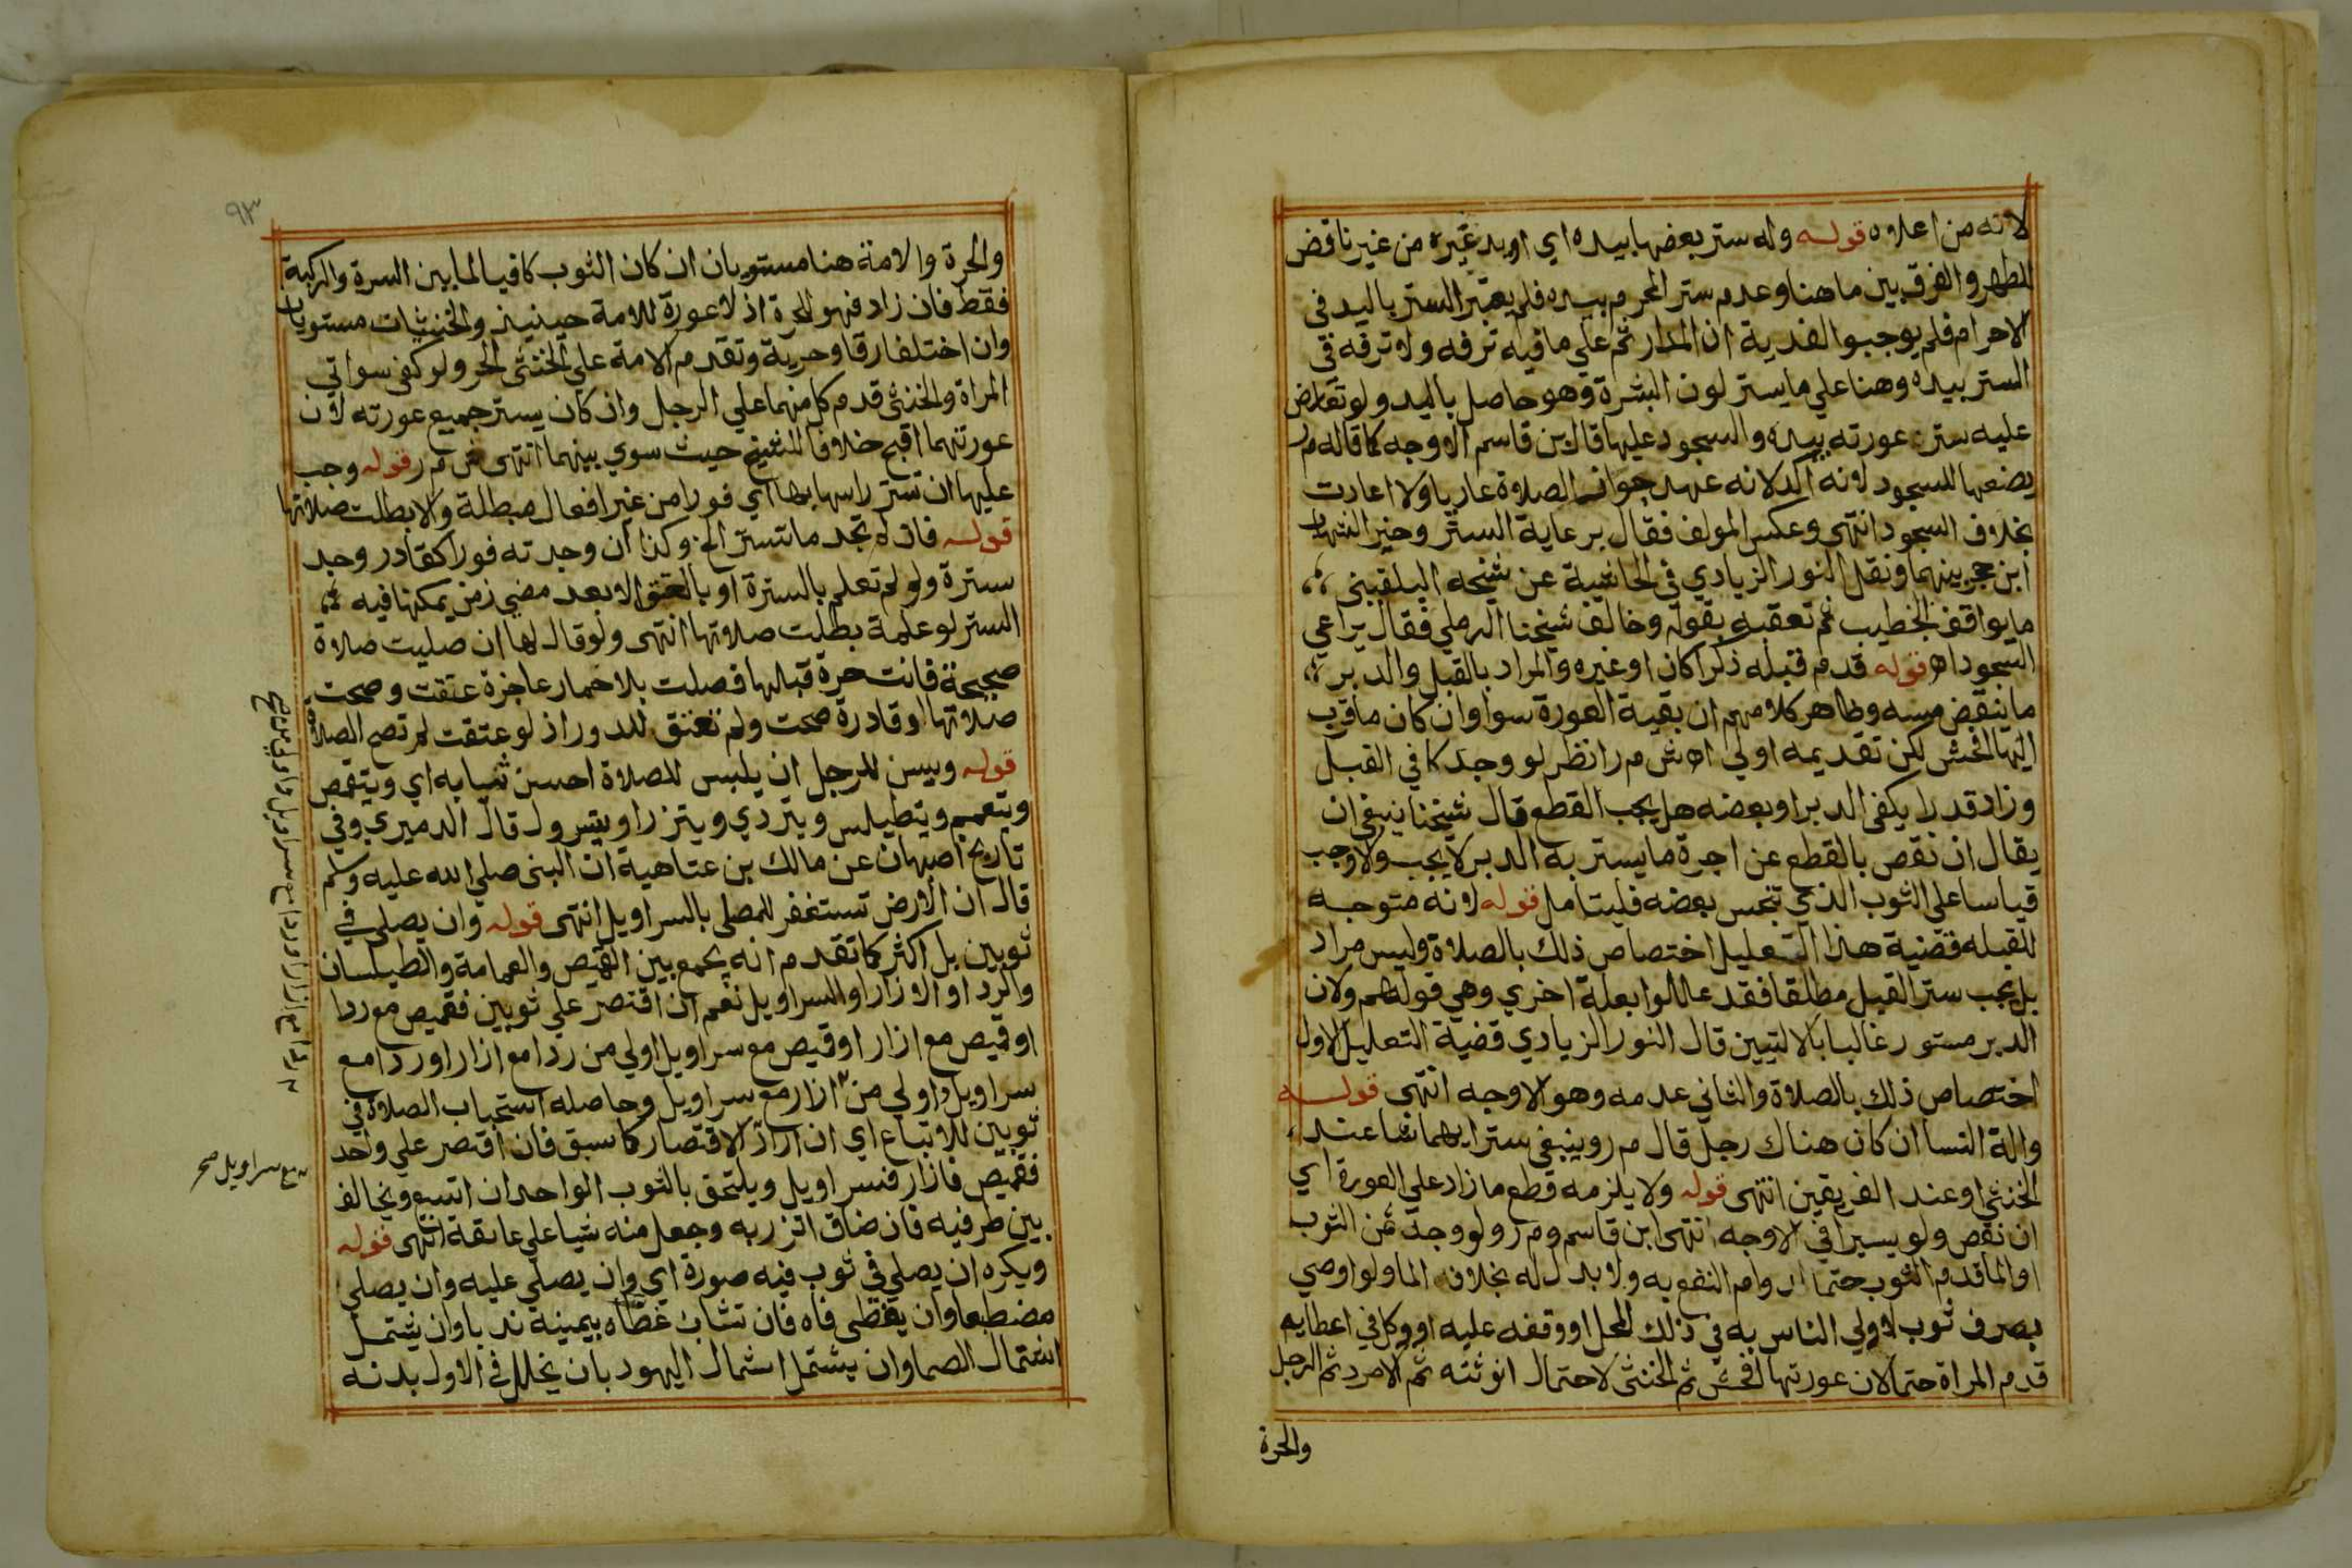 لانه من اعلاه قوله وله ستر بعضها بيده اي او بيد غيره من غير ناقض
للطهر والفرق بين ما هنا وعدم ستر المحرم بيده فلم يعتبر الستر باليد في
الاحرام فلم يوجبوا الفدية ان المدار ثم علي ما فيه ترفه ولا ترفه في
الستر بيده وهنا علي ما يستر لون البشرة وهو حاصل باليد ولو تعارض
عليه ستر عورته بيده والسجود عليها قال بن قاسم الاوجه كما قاله م ر
يضعها للسجود لانه آكد لانه عهد جواز الصلاة عاريا ولا اعادت
بخلاف السجود انتهى وعكس المولف فقال برعاية الستر وخير الشهاب
ابن حجر بينهما ونقل النور الزيادي في الحاشية عن شيخه البلقيني
ما يوافق الخطيب ثم تعقبه بقوله وخالف شيخنا الرملي فقال يراعي
السجود اه قوله قدم قبله ذكرا كان او غيره والمراد بالقبل والدبر
ما ينقض مسه وظاهر كلامهم ان بقية العورة سوا وان كان ما قرب
اليها افحش لكن تقديمه اولي اه ش م ر انظر لو وجد كافي القبل
وزاد قدرا يكفي الدبر او بعضه هل يجب القطع قال شيخنا ينبغي ان
يقال ان نقص بالقطع عن اجرة ما يستر به الدبر لا يجب ولا وجب
قياسا علي الثوب الذي تنجس بعضه فليتامل قوله لانه متوجه
للقبله فقضية هذا التعليل اختصاص ذلك بالصلاة وليس مراد
بل يجب ستر القبل مطلقا فقد عللوا بعلة اخري وهي قولهم ولان
الدبر مستور غالبا بالاليتين قال النور الزيادي قضية التعليل الاول
اختصاص ذلك بالصلاة والثاني عدمه وهو الاوجه انتهى قوله
والة النسا ان كان هناك رجل قال م ر وينبغي ستر ايهما شا عند
الخنثي او عند الفريقين انتهى قوله ولا يلزمه قطع ما زاد علي العورة اي
ان نقص ولو يسيرا في الاوجه انتهى ابن قاسم و م ر ولو وجد ثمن الثوب
او الما قدم الثوب حتما لدوام النفع به ولا بدل له بخلاف الما ولو اوصي
بصرف ثوب لاولي الناس به في ذلك المحل او وقفه عليه او وكل في اعطايه
قدم المراة حتما لان عورتها افحش ثم الخنثي لاحتمال انوثته ثم الامرد ثم الرجل
والحرة
٩٣
والحرة والامة هنا مستويان ان كان الثوب كافيا لما بين السرة والركبة
فقط فان زاد فهو للحرة اذ لا عورة للامة حينيذ والخنثيات مستويان
وان اختلفا رقا وحرية وتقدم الامة علي الخنثي الحر ولو كفي سواتي
المراة والخنثي قدم كل منهما علي الرجل وان كان يستر جميع عورته لان
عورتهما اقبح خلافا للشيخ حيث سوي بينهما انتهى ش م ر قوله وجب
عليها ان تستر راسها بها اي فورا من غير افعال مبطلة والا بطلت صلاتها
قوله فان لم تجد ما تستتر الخ وكذا ان وجدته فورا كقادر وجد
سترة ولو لم تعلم بالسترة او بالعتق الا بعد مضي زمن يمكنها فيه
الستر لو علمة بطلت صلاتها انتهى ولو قال لها ان صليت صلاة
صحيحة فانت حرة قبلها فصلت بلا خمار عاجزة عتقت وصحت
صلاتها او قادرة صحت ولم تعتق للدور اذ لو عتقت لم تصح الصلاة
قوله ويسن للرجل ان يلبس للصلاة احسن ثيابه اي ويتقمص
ويتعمم ويتطيلس ويتردي ويتزر او يتسرول قال الدميري وفي
تاريخ اصبهان عن مالك بن عتاهية ان النبي صلي الله عليه وسلم
قال ان الارض تستغفر للمصلي بالسراويل انتهى قوله وان يصلي في
ثوبين بل اكثر كما تقدم انه يجمع بين القميص والعمامة والطيلسان
والرد او الازار او السراويل نعم ان اقتصر علي ثوبين فقميص مع ردا
او قميص مع ازار او قميص مع سراويل اولي من ردا مع ازار او ردا مع
سراويل واولي من ازار مع سراويل وحاصله استحباب الصلاة في
ثوبين للاتباع اي ان اراد الاقتصار كما سبق فان اقتصر علي واحد
فقميص فازار فسراويل ويلتحق بالثوب الواحد ان اتسع ويخالف
بين طرفيه فان ضاق اتزر به وجعل منه شيا علي عاتقة انتهى قوله
ويكره ان يصلي في ثوب فيه صورة اي وان يصلي عليه وان يصلي
مضطبعا وان يغطي فاه فان تثاب غطاه بيمينه ندبا وان يشتمل
اشتمال الصما وان يشتمل اشتمال اليهود بان يخلل في الاول بدنه
مع سراويل صح